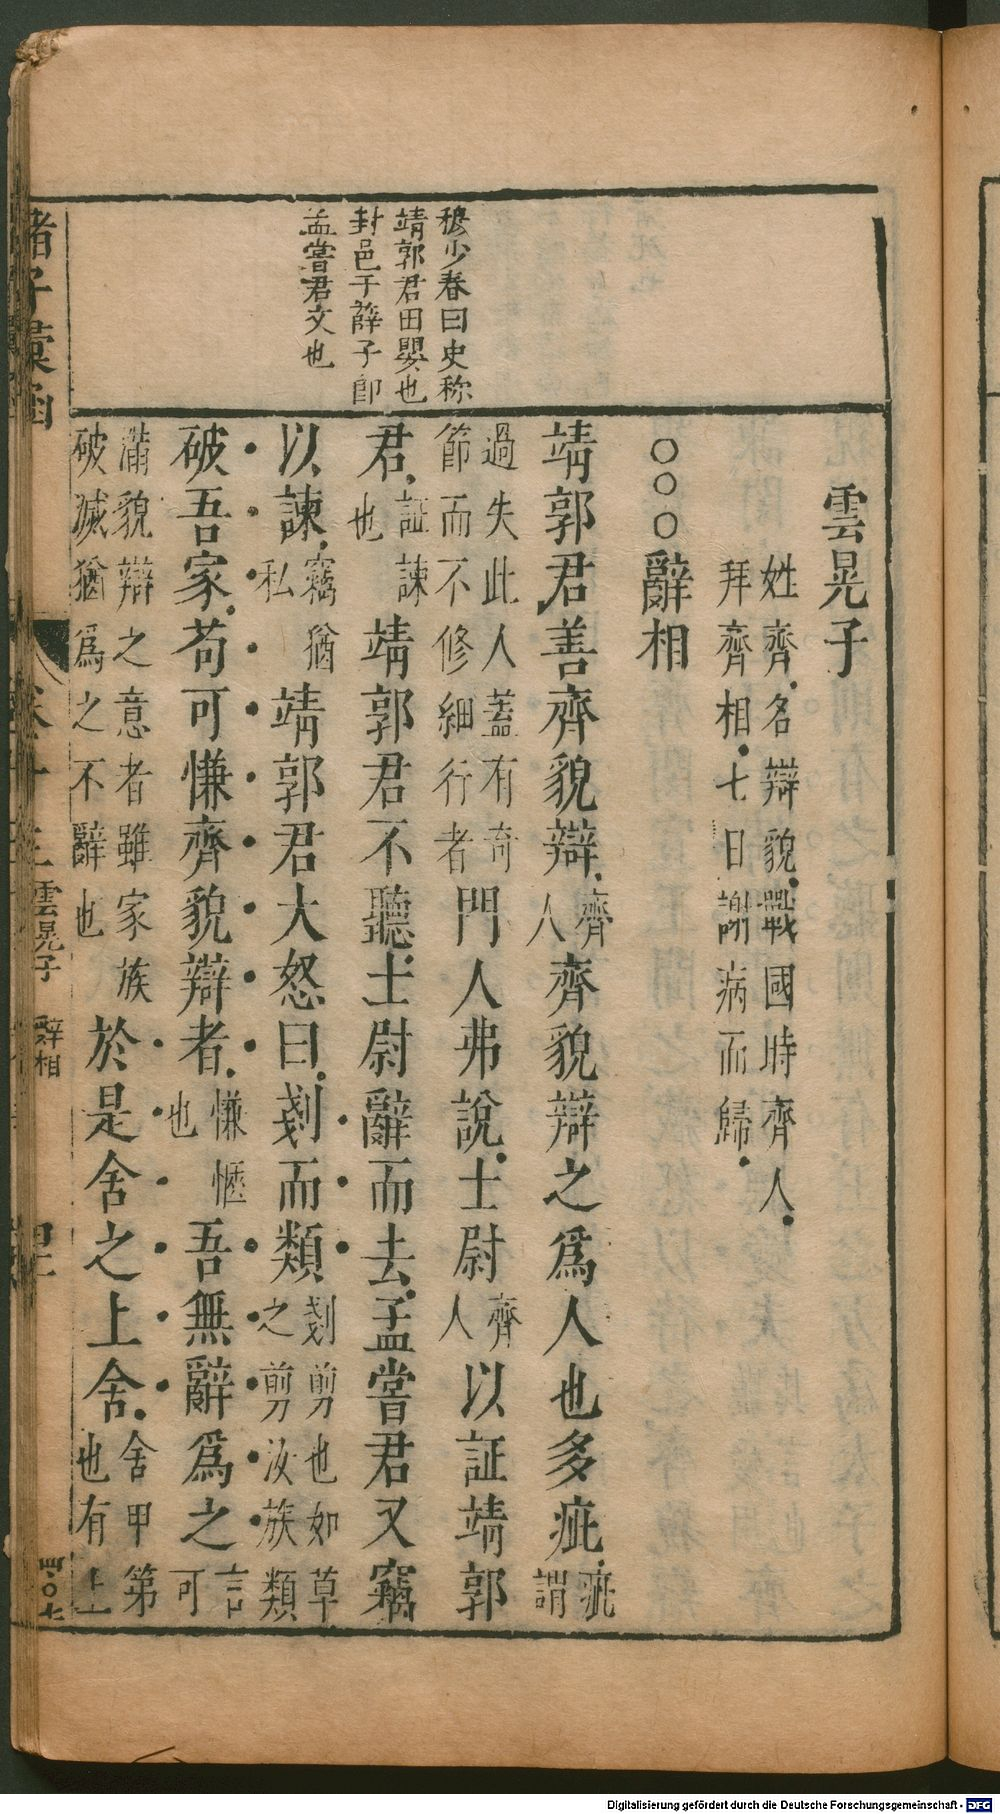 穆少春曰史称
靖郭君田嬰也
封邑于薛子即
孟嘗君文也
雲晃子
姓齊名辯貌戰國時齊人
拜齊相七日謝病而歸
○○○辭相
靖郭君善齊貌辯齊人齊貌辯之爲人也多疵疵謂
過失此人蓋有奇節而不修細行者門人弗說士尉齊人以証靖郭
君証諫也靖郭君不聽士尉辭而去孟嘗君又竊
以諫竊猶私靖郭君大怒曰剗而類剗剪也如草之剪汝族類
破吾家苟可慊齊貌辯者慊愜也吾無辭爲之言可
滿貌辯之意者雖家族破滅猶爲之不辭也於是舍之上舍舍甲第也有上
諸子彙函
雲晃子
辭相
四〇七
Digitalisierung gefördert durch die Deutsche Forschungsgemeinschaft - DFG